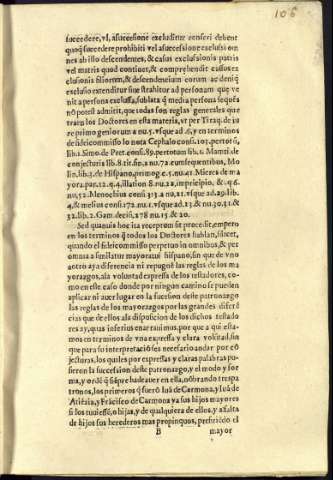 106
succedere, vl, a successione excluditur censeri debent
quoq; succedere prohibiti vel a successione exclusi om
nes ab illo descendentes, & casus exclusionis patris
vel matris quod continet, & comprehendit
exclusionis filiorum, & descendentium eorum ac deniq;
exclusio extenditur sine strahitur ad personam que ve
nit a persona exclussa, sublata q; media persona sequēs
nō potest admitit, que todas son reglas generales que
traen los Doctores en esta materia, vt per Tiraq. de iu
re primo geniorum a nu.5. vsque ad .6, y en terminos
de fideicommisso lo nota Cephalo consi.103.per totū,
lib.1. Simo. de Pret. consi.89.per totum lib.1. Manti. de
coniecturis lib.8. tit. nu.72. cum sequentibus, Mo
lin. lib.3. de Hispano, primog. c.5. nu.41. Mieres de ma
yora. par.12. q.4. illation 8. nu.22. in principio, & .q6.
nu,52. Menochius consi.213.a nu,21. vsque ad. lib.
4. & melius consi.172. nu.1. vsque ad.13. & nu,30.31. &
32. lib.2. Gam. decis, 278 nu.15. & 20.
Sed quanuis hoc ita receptum sit procedit, empero
en los terminos q̄ todos los Doctores hablan, scilicet,
quando el fideicomisso perpetuo in omnibus, & per
omnia a similatur mayoratui hispano, sin que de vno
a otro aya diferencia ni repugnē las reglas de los ma
yorazgos, a la voluntad expressa de los testadores, co-
mo en este caso donde por ningun camino se pueden
aplicar ni auer lugar en la sucesion deste patronazgo
las reglas de los mayorazgos por las grandes diferē
cias que de ellos a la disposicion de los dichos testado
res ay, quas inferius enarrauimus, por que a qui esta-
mos en terminos de vna expressa y clara volūtad, sin
que para su interpretaciō sea necessario andar por cō
jecturas, los quales por expressas y claras palabras pu-
sieron la sucession deste patronazgo, y el modo y for
ma, y ordē q̄ siēpre ha de auer en ella, nōbrando tres pa
tronos, los primeros q̄ fuerō Iuā de Carmona, y Iuā de
Atiēza, y Frācisco de Carmona y a sus hijos mayores
si los tuuiessē, o hijas, y de qualquiera de ellos, y a falta
de hijos sus herederos mas propinquos, prefiriēdo el
B mayor